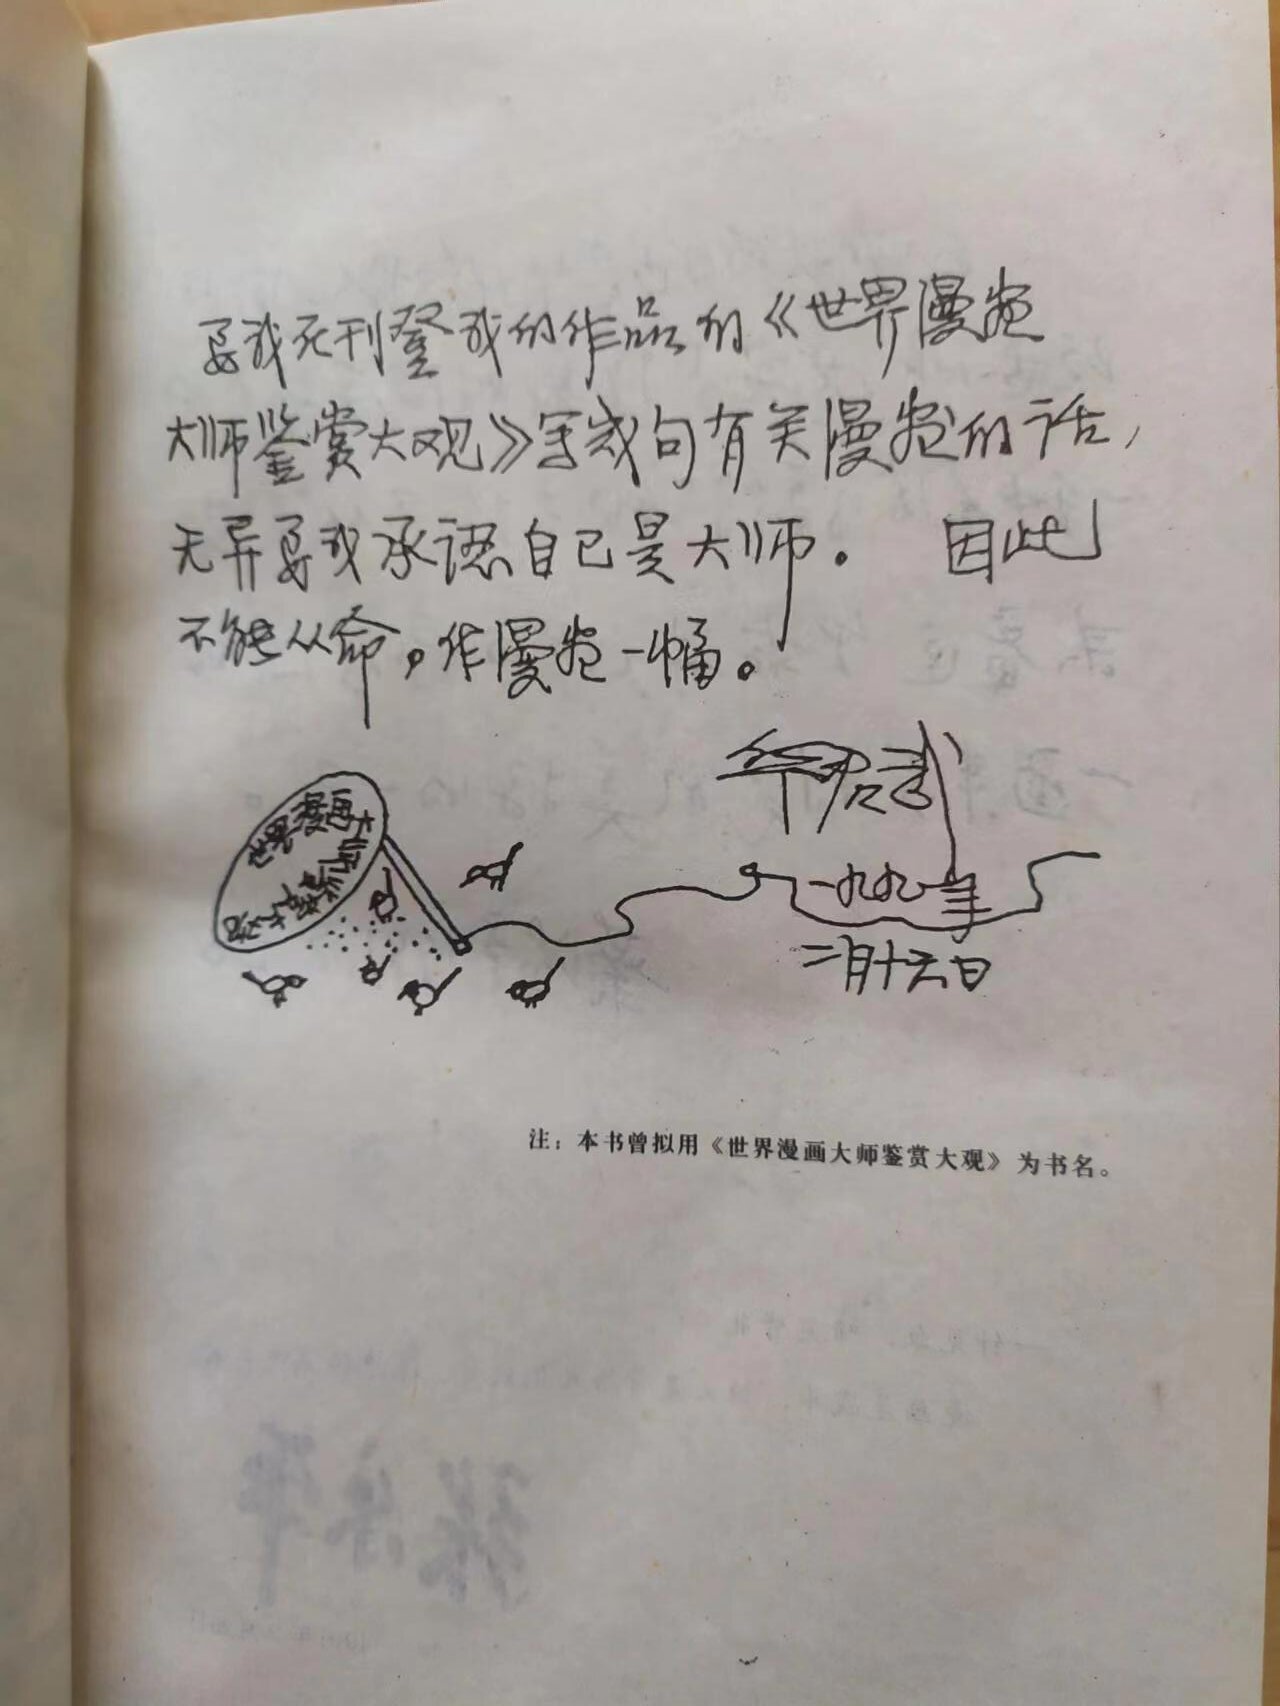 要我在刊登我的作品的《世界漫画
大师鉴赏大观》写几句有关漫画的话，
无异要我承认自己是大师。 因此
不能从命。作漫画一幅。
华君武
一九九一年
二月十六日
世界漫画大师鉴赏大观
注：本书曾拟用《世界漫画大师鉴赏大观》为书名。
张乐平